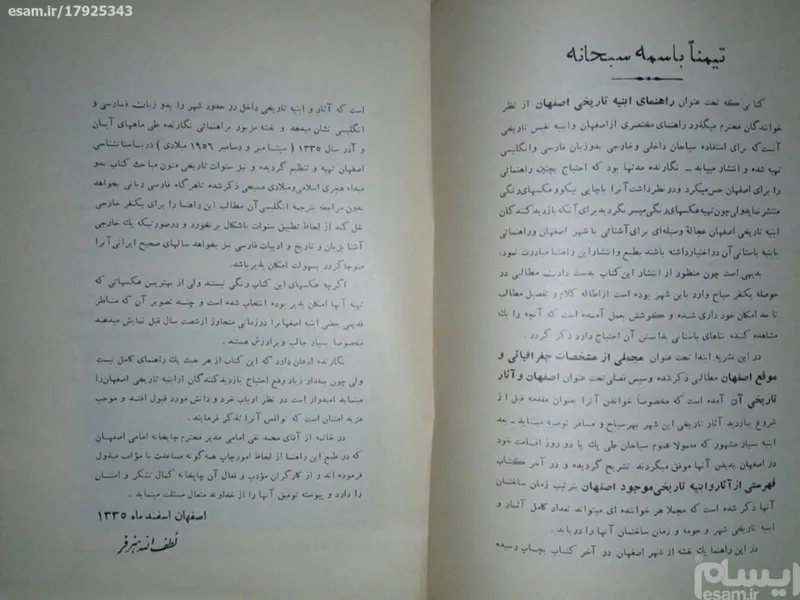 esam.ir/17925343
تیمناً باسمه سبحانه
کتابی که تحت عنوان راهنمای ابنیه تاریخی اصفهان از نظر
خوانندگان محترم میگذرد راهنمای مختصری از اصفهان و ابنیه نفیس تاریخی
آنست که برای استفاده سیاحان داخلی و خارجی بدو زبان فارسی و انگلیسی
تهیه شده و انتشار مییابد ـ نگارنده مدتها بود که احتیاج بچنین راهنمائی
را برای اصفهان حس میکرد و در نظر داشت آنرا با چاپی نیکو و عکسهای رنگی
منتشر نماید ولی چون تهیه عکسهای رنگی میسر نگردید برای آنکه بازدیدکنندگان
ابنیه تاریخی اصفهان عجالة وسیله‌ای برای آشنائی با شهر اصفهان و راهنمائی
بابنیه باستانی آن در اختیار داشته باشند بطبع و انتشار این راهنما مبادرت نمود.
بدیهی است چون منظور از انتشار این کتاب بدست دادن مطالبی در
حوصله یکنفر سیاح وارد باین شهر بوده است از اطاله کلام و تفصیل مطالب
تا حد امکان خودداری شده و کوشش بعمل آمده است که آنچه را یك
مشاهده کننده بناهای باستانی بدانستن آن احتیاج دارد ذکر گردد .
در این نشریه ابتدا تحت عنوان مجملی از مشخصات جغرافیائی و
موقع اصفهان مطالبی ذکر شده و سپس فصلی تحت عنوان اصفهان و آثار
تاریخی آن آمده است که مخصوصا خواندن آنرا بعنوان مقدمه قبل از
شروع ببازدید آثار تاریخی این شهر بهر سیاح و مسافر توصیه مینماید ـ بعد
ابنیه بسیار مشهور که معمولا عموم سیاحان طی یك یا دو روز اقامت خود
در اصفهان بدیدن آنها موفق میگردند تشریح گردیده و در آخر کتاب
فهرستی از آثار و ابنیه تاریخی موجود اصفهان بترتیب زمان ساختمان
آنها ذکر شده است که مجملا هر خواننده ای میتواند تعداد کامل آثار و
ابنیه تاریخی شهر و حومه و زمان ساختمان آنها را دریابد .
در این راهنما یك نقشه از شهر اصفهان در آخر کتاب بچاپ رسیده
است که آثار و ابنیه تاریخی داخل در حدود شهر را بدو زبان فارسی و
انگلیسی نشان میدهد و نقشه مزبور براهنمائی نگارنده طی ماههای آبان
و آذر سال ۱۳۳۵ ( سپتامبر و دسامبر ۱۹۵۶ میلادی ) در باستانشناسی
اصفهان تهیه و تنظیم گردیده و نیز سنوات تاریخی متون مباحث کتاب بدو
مبداء هجری اسلامی و میلادی مسیحی ذکر شده تا هرگاه فارسی زبانی بخواهد
بدون مراجعه بترجمه انگلیسی آن مطالب این راهنما را برای یکنفر خارجی
نقل کند از لحاظ تطبیق سنوات باشکال برنخورد و در صورتیکه یك خارجی
آشنا بزبان و تاریخ و ادبیات فارسی نیز بخواهد سالهای صحیح ایرانی آنرا
متوجه گردد بسهولت امکان پذیر باشد.
اگرچه عکسهای این کتاب رنگی نیستند ولی از بهترین عکسهائی که
تهیه آنها امکان پذیر بوده انتخاب شده است و چند تصویر آن که مناظر
قدیمی بعضی ابنیه اصفهان را در زمانی متجاوز از شصت سال قبل نمایش میدهند
مخصوصا بسیار جالب و پر ارزش هستند .
نگارنده اذعان دارد که این کتاب از هر حیث یك راهنمای کامل نیست
ولی چون بمقدار زیاد رفع احتیاج بازدیدکنندگان از ابنیه تاریخی اصفهان را
مینماید امیدوار است در نظر ارباب خرد و دانش مورد قبول افتد و موجب
مزید امتنان است که نواقص آنرا تذکر فرمایند .
در خاتمه از آقای محمد تقی امامی مدیر محترم چاپخانه امامی اصفهان
که در طبع این راهنما از لحاظ امور چاپ همه گونه مساعدت با مؤلف مبذول
فرموده اند و از کارگران مؤدب و فعال آن چاپخانه کمال تشکر و امتنان
را دارد و پیوسته توفیق آنها را از خداوند متعال مسئلت مینماید .
اصفهان اسفند ماه ۱۳۳۵
لطف الله هنرفر
ایسام
esam.ir